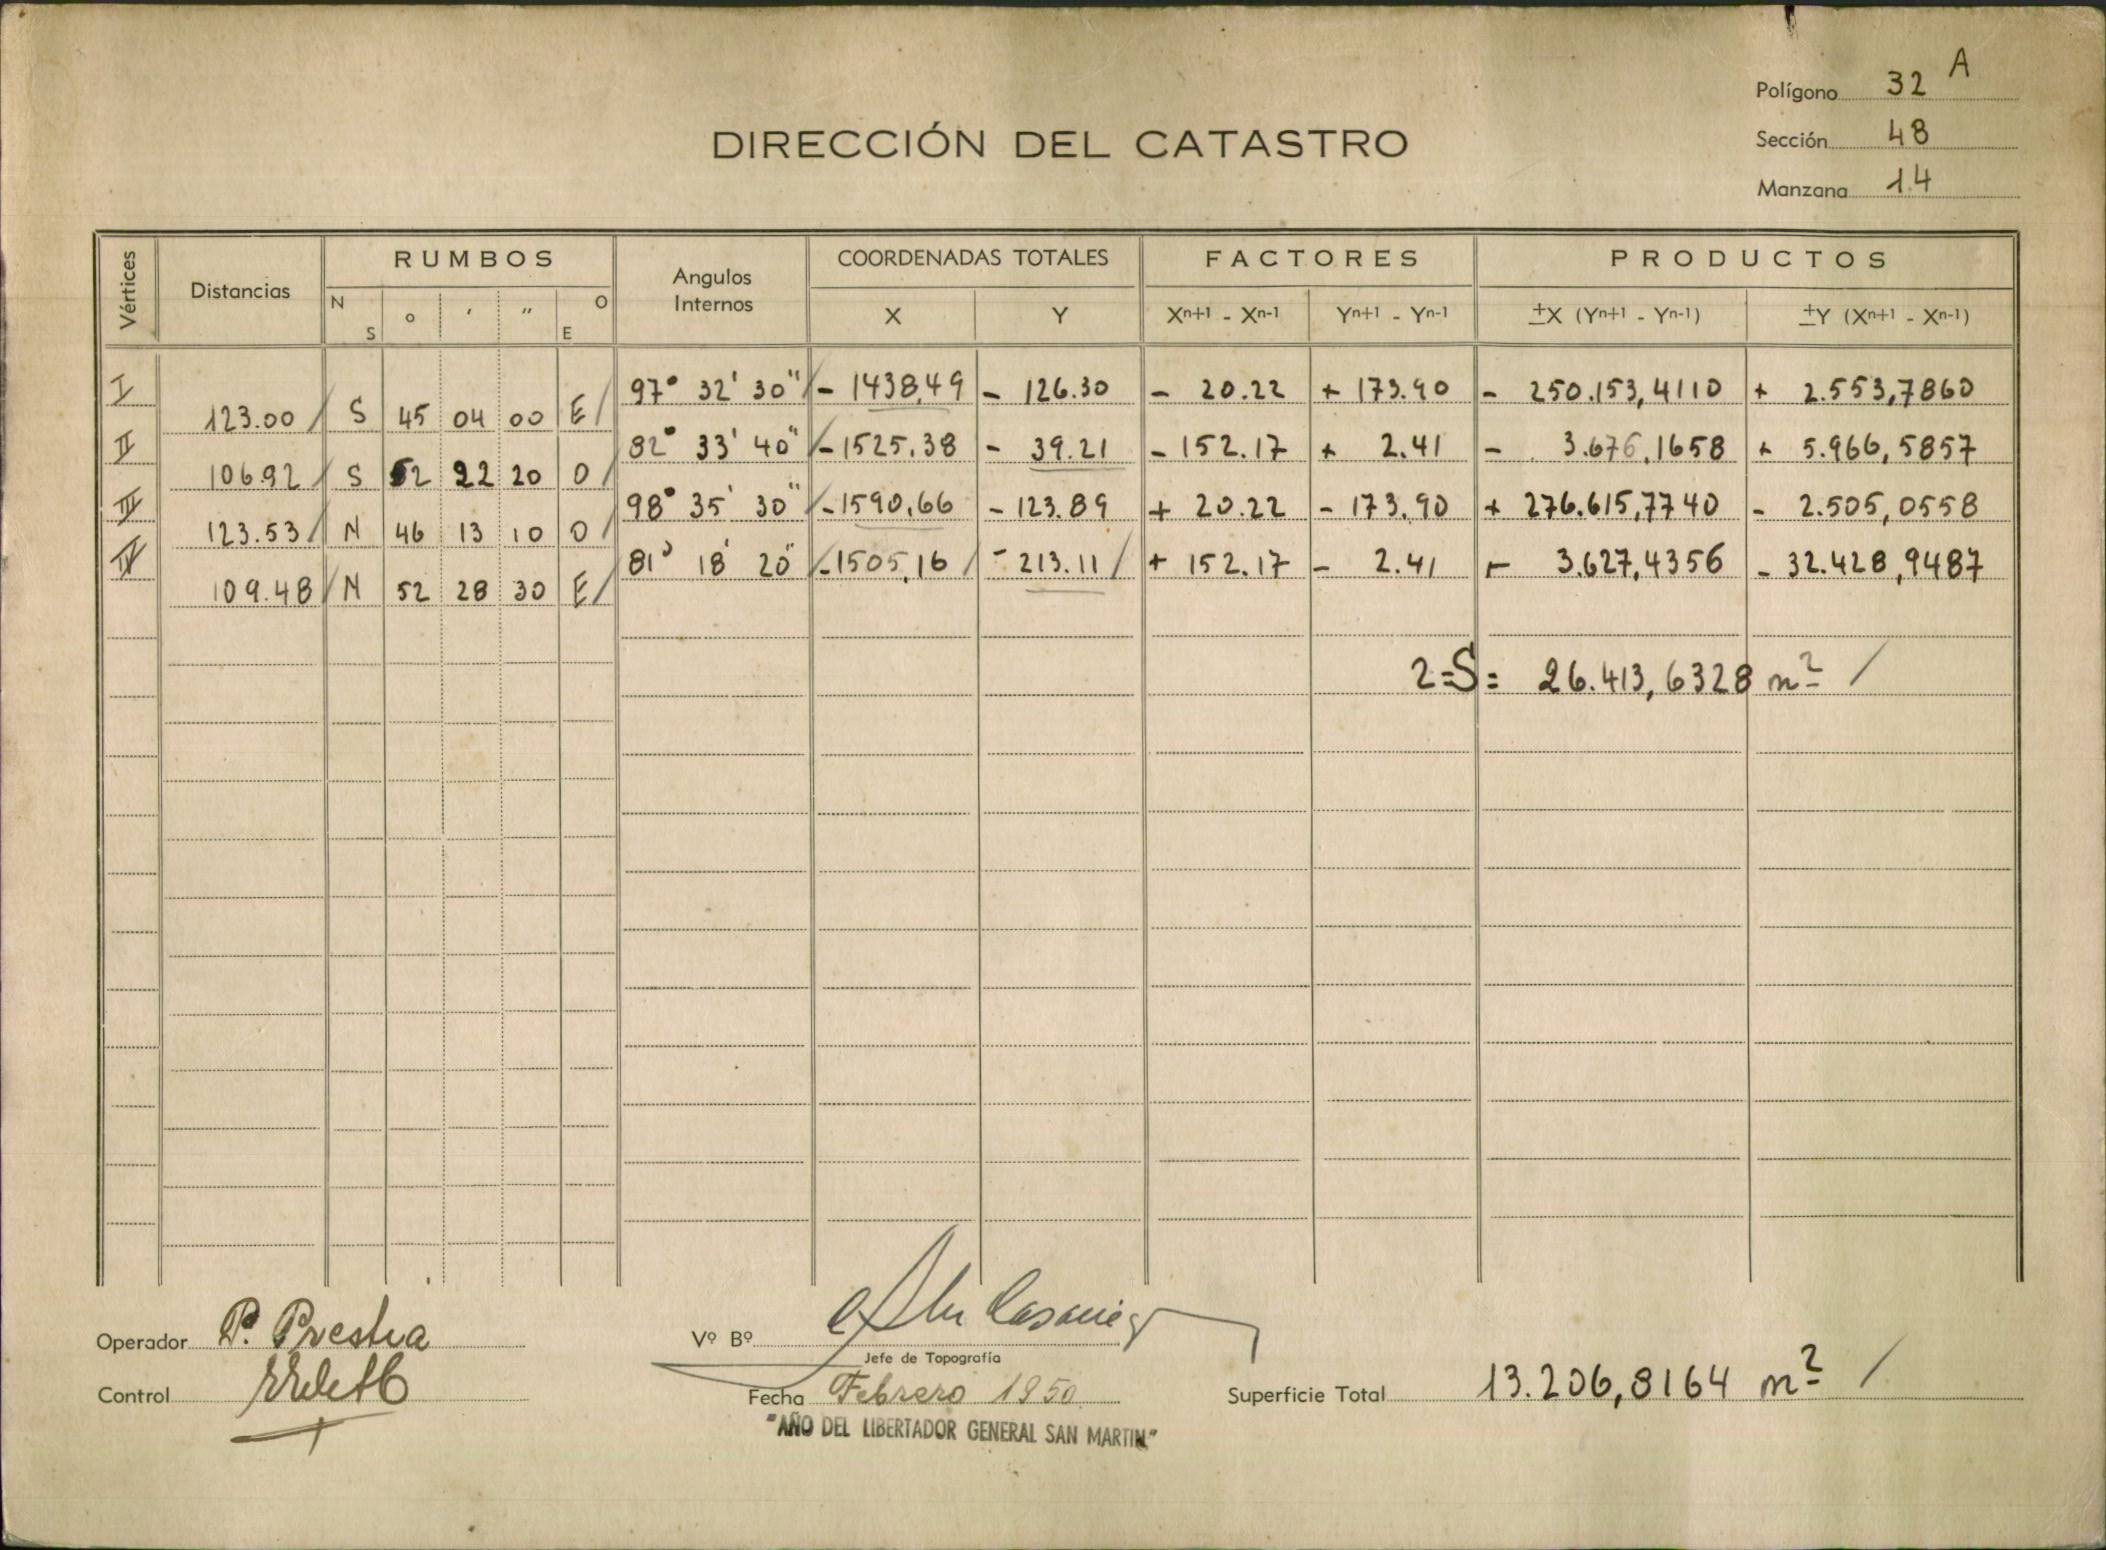 Polígono 32 A
DIRECCIÓN DEL CATASTRO
Sección 48
Manzana 14
Vértices Distancias RUMBOS Angulos Internos COORDENADAS TOTALES FACTORES PRODUCTOS
N S ° ′ ″ O E X Y Xn+1 - Xn-1 Yn+1 - Yn-1 ±X (Yn+1 - Yn-1) ±Y (Xn+1 - Xn-1)
I 97° 32' 30" - 1438,49 - 126.30 - 20.22 + 173.90 - 250.153,4110 + 2.553,7860
123.00 S 45 04 00 E
II 82° 33' 40" - 1525,38 - 39.21 - 152.17 + 2.41 - 3.676,1658 + 5.966,5857
106.92 S 52 22 20 O
III 98° 35' 30" - 1590,66 - 123.89 + 20.22 - 173.90 + 276.615,7740 - 2.505,0558
123.53 N 46 13 10 O
IV 81° 18' 20" - 1505,16 - 213.11 + 152.17 - 2.41 + 3.627,4356 - 32.428,9487
109.48 N 52 28 30 E
2=S= 26.413,6328 m²
Operador P. Prestia
Vº Bº
Jefe de Topografía
Control
Fecha Febrero 1950
Superficie Total 13.206,8164 m²
"AÑO DEL LIBERTADOR GENERAL SAN MARTIN"